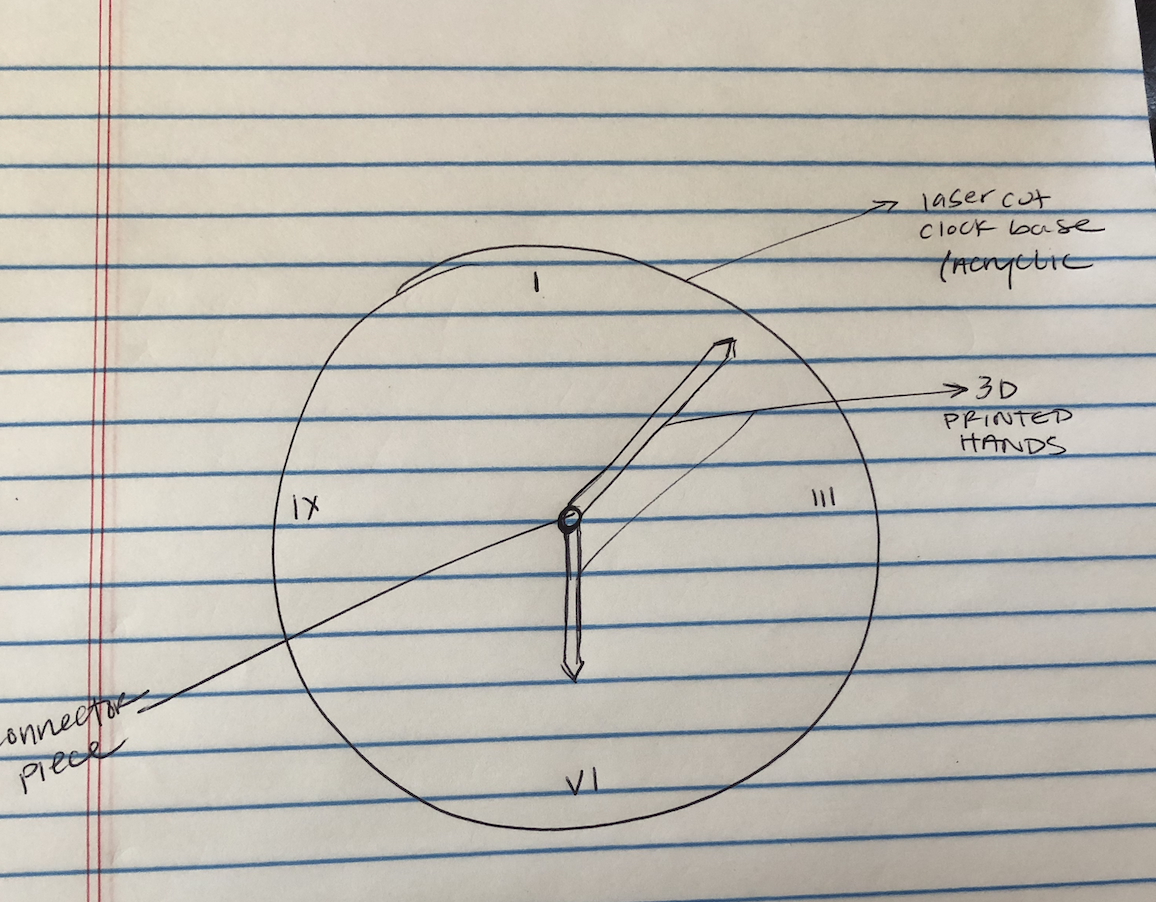 laser cut
clock base
(Acrylic
I
3D
PRINTED
HANDS
IX
III
onnector
piece
VI